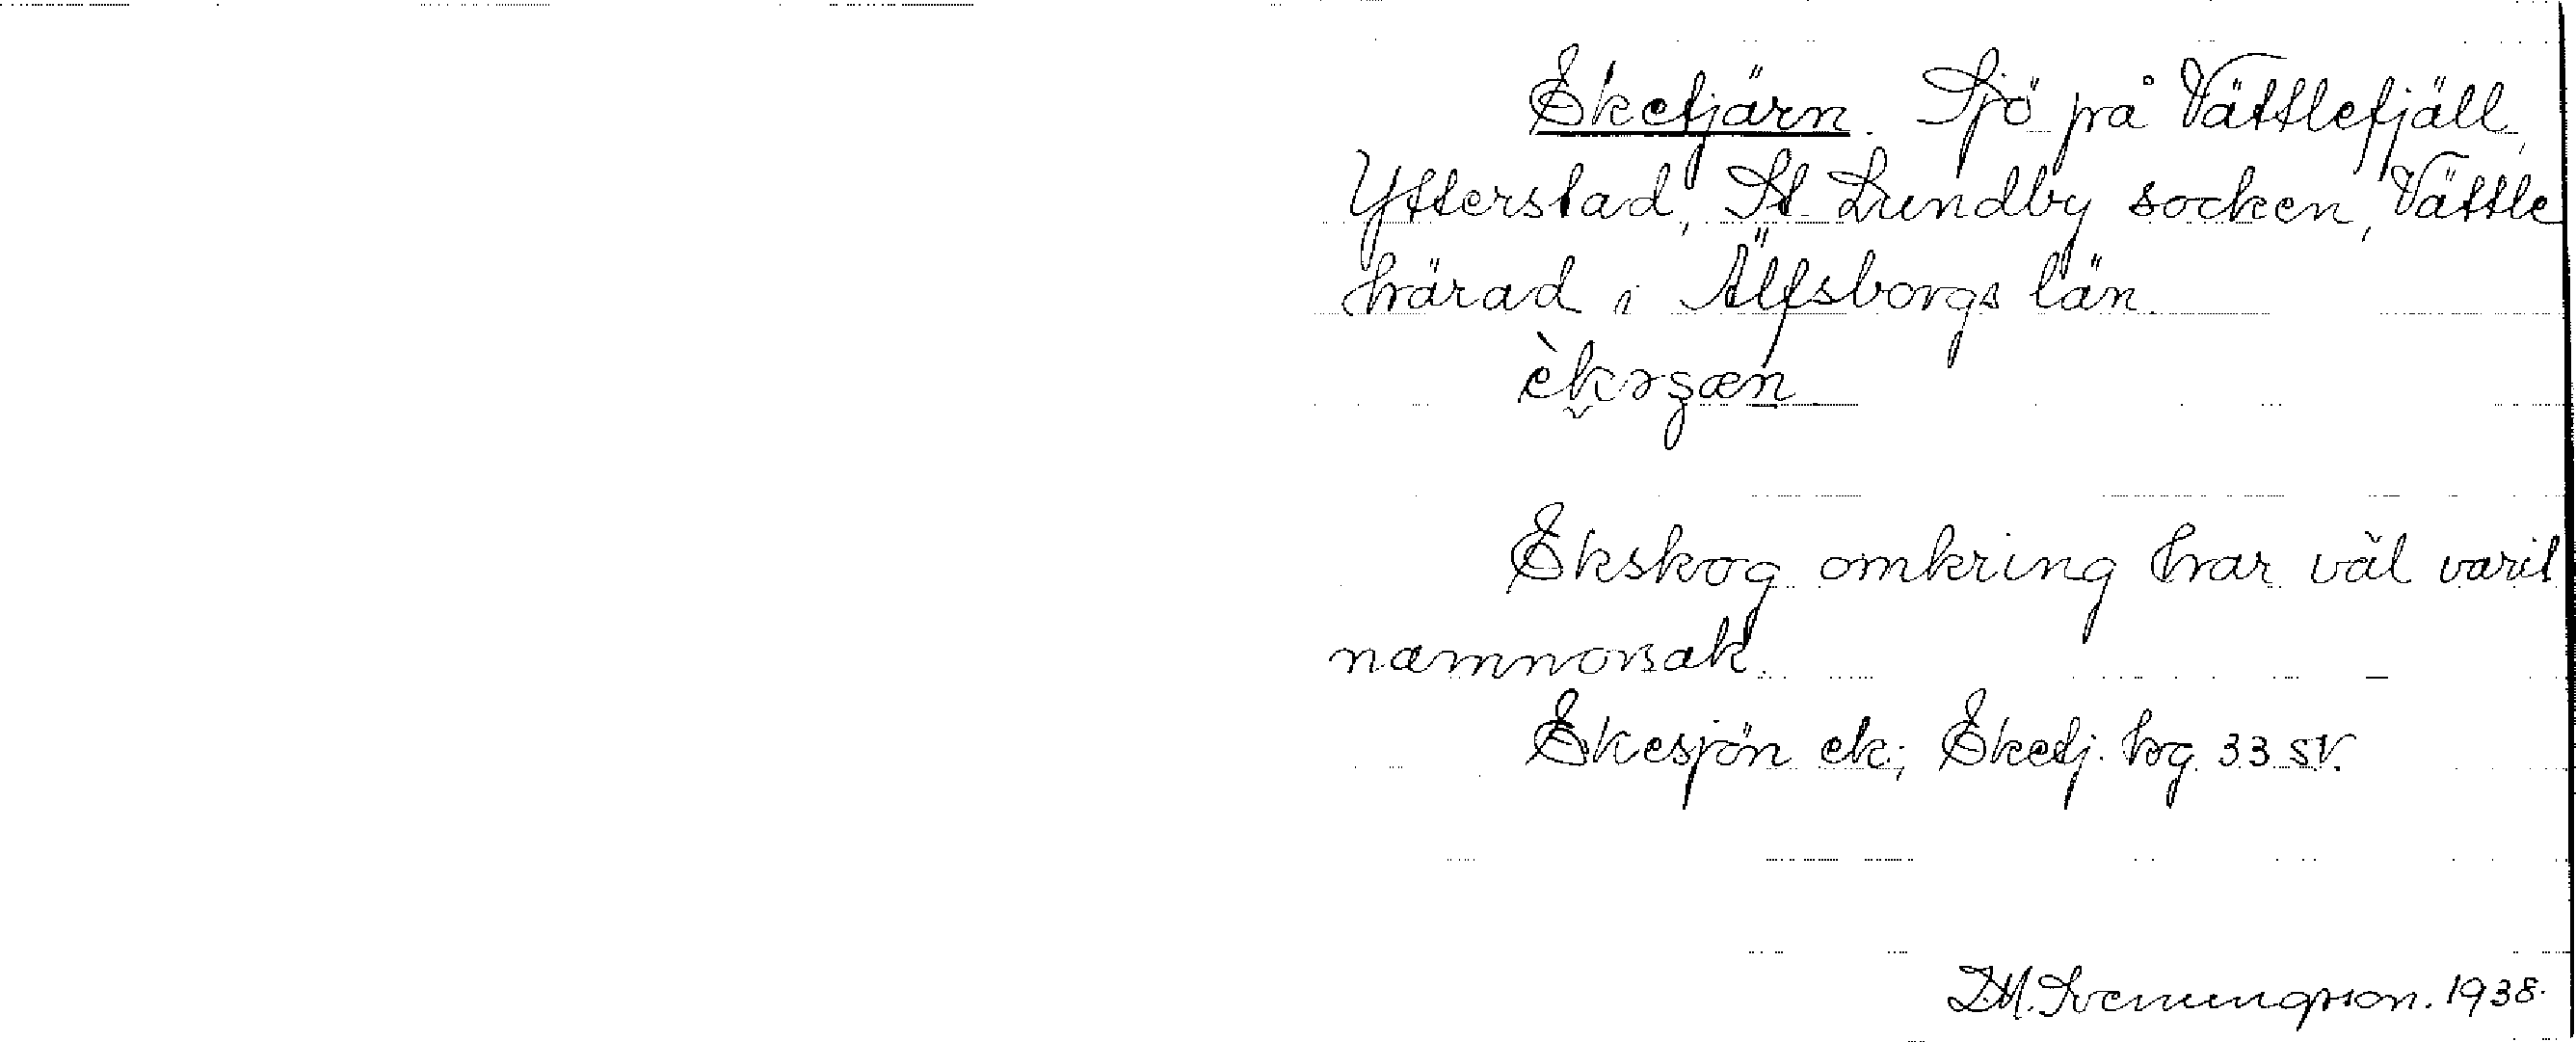 Eketjärn. Sjö på Vättlefjäll,
Ytterstad, St. Lundby socken, Vättle
härad i Älfsborgs län.
Ekskog omkring har väl varit
namnorsak.
Ekesjön ek.; Eketj. hg 33 SV.
1938.